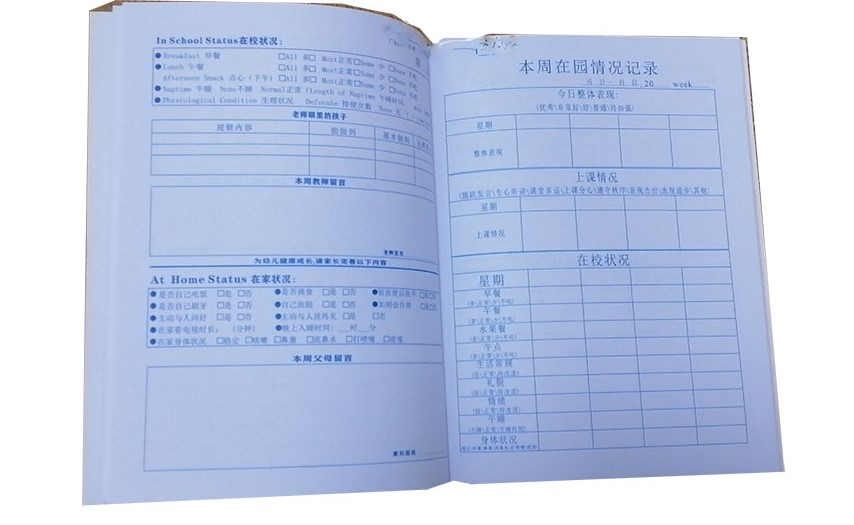 In School Status在校状况:
Breakfast 早餐 □All 多□ Most正常□Some 少 □None
Lunch 午餐 □All 多□ Most正常□Some 少 □None
Afternoon Snack 点心(下午) □All 多□ Most正常□Some 少 □None
Naptime 午睡 None不睡 Normal正常(Length of Naptime 午睡时间:
Physiological Condition 生理状况 Defecate 排便次数 None 无
老师眼里的孩子
观察内容 能做到 基本做到
本周教师留言
老师签名
为幼儿健康成长,请家长完善以下内容
At Home Status 在家状况:
是否自己吃饭 □是 □否 是否挑食 □是 □否
是否自己刷牙 □是 □否 自己洗脸 □是 □否
主动与人问好 □是 □否 主动与人说再见 □是 □否
在家看电视时长: (分钟) 晚上入睡时间:___时___分
在家身体状况 □稳定 □咳嗽 □鼻塞 □流鼻水 □打喷嚏
本周父母留言
家长签名
本周在园情况记录
月 日— 月 日 20 week
今日整体表现:
(优秀\非常好\好\普通\待加强)
星期
整体表现
上课情况
(踊跃发言\专心听讲\课堂多话\上课分心\遵守秩序\表现杰出\表现进步\其他)
星期
上课情况
在校状况
星期
早餐
午餐
水果餐
午点
生活常规
礼貌
情绪
午睡
身体状况